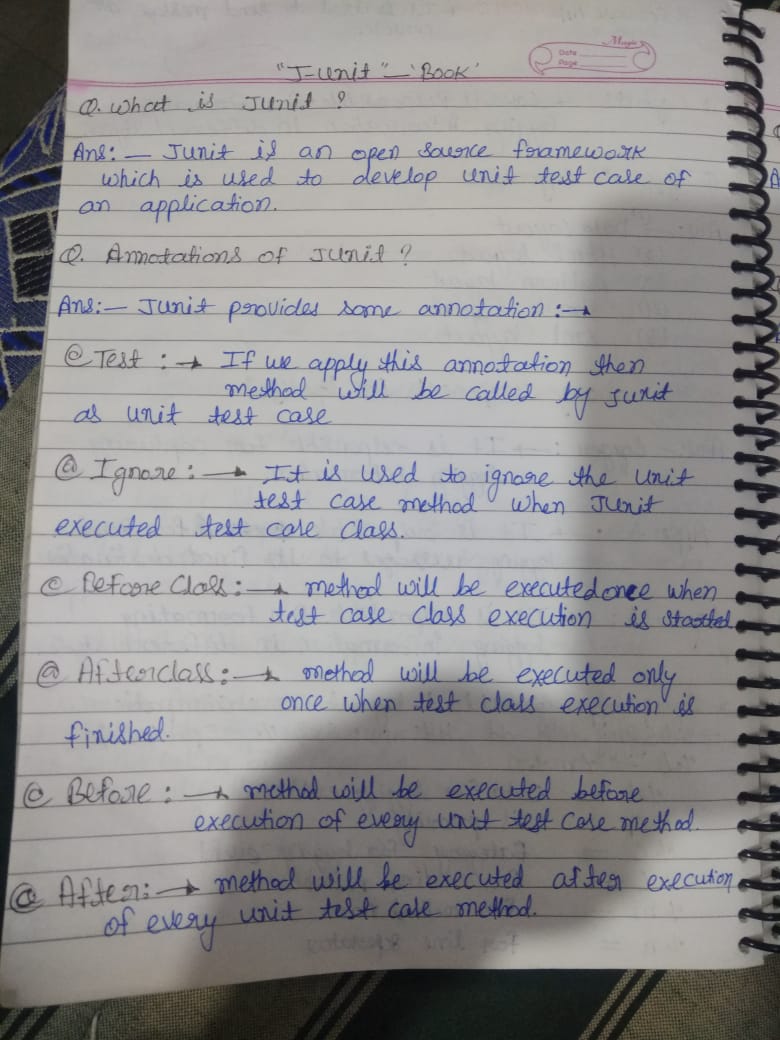 Magic
Date
Page
"J-unit" – 'Book'
Q. What is Junit ?
Ans: – Junit is an open source framework
which is used to develop unit test case of
an application.
Q. Annotations of Junit ?
Ans:– Junit provides some annotation :→
@ Test : → If we apply this annotation then
method will be called by junit
as unit test case
@ Ignore : → It is used to ignore the unit
test case method when Junit
executed test case class.
@ Before Class : → method will be executed once when
test case class execution is started
@ Afterclass : → method will be executed only
once when test class execution is
finished.
@ Before : → method will be executed before
execution of every unit test case method.
@ After : → method will be executed after execution
of every unit test case method.